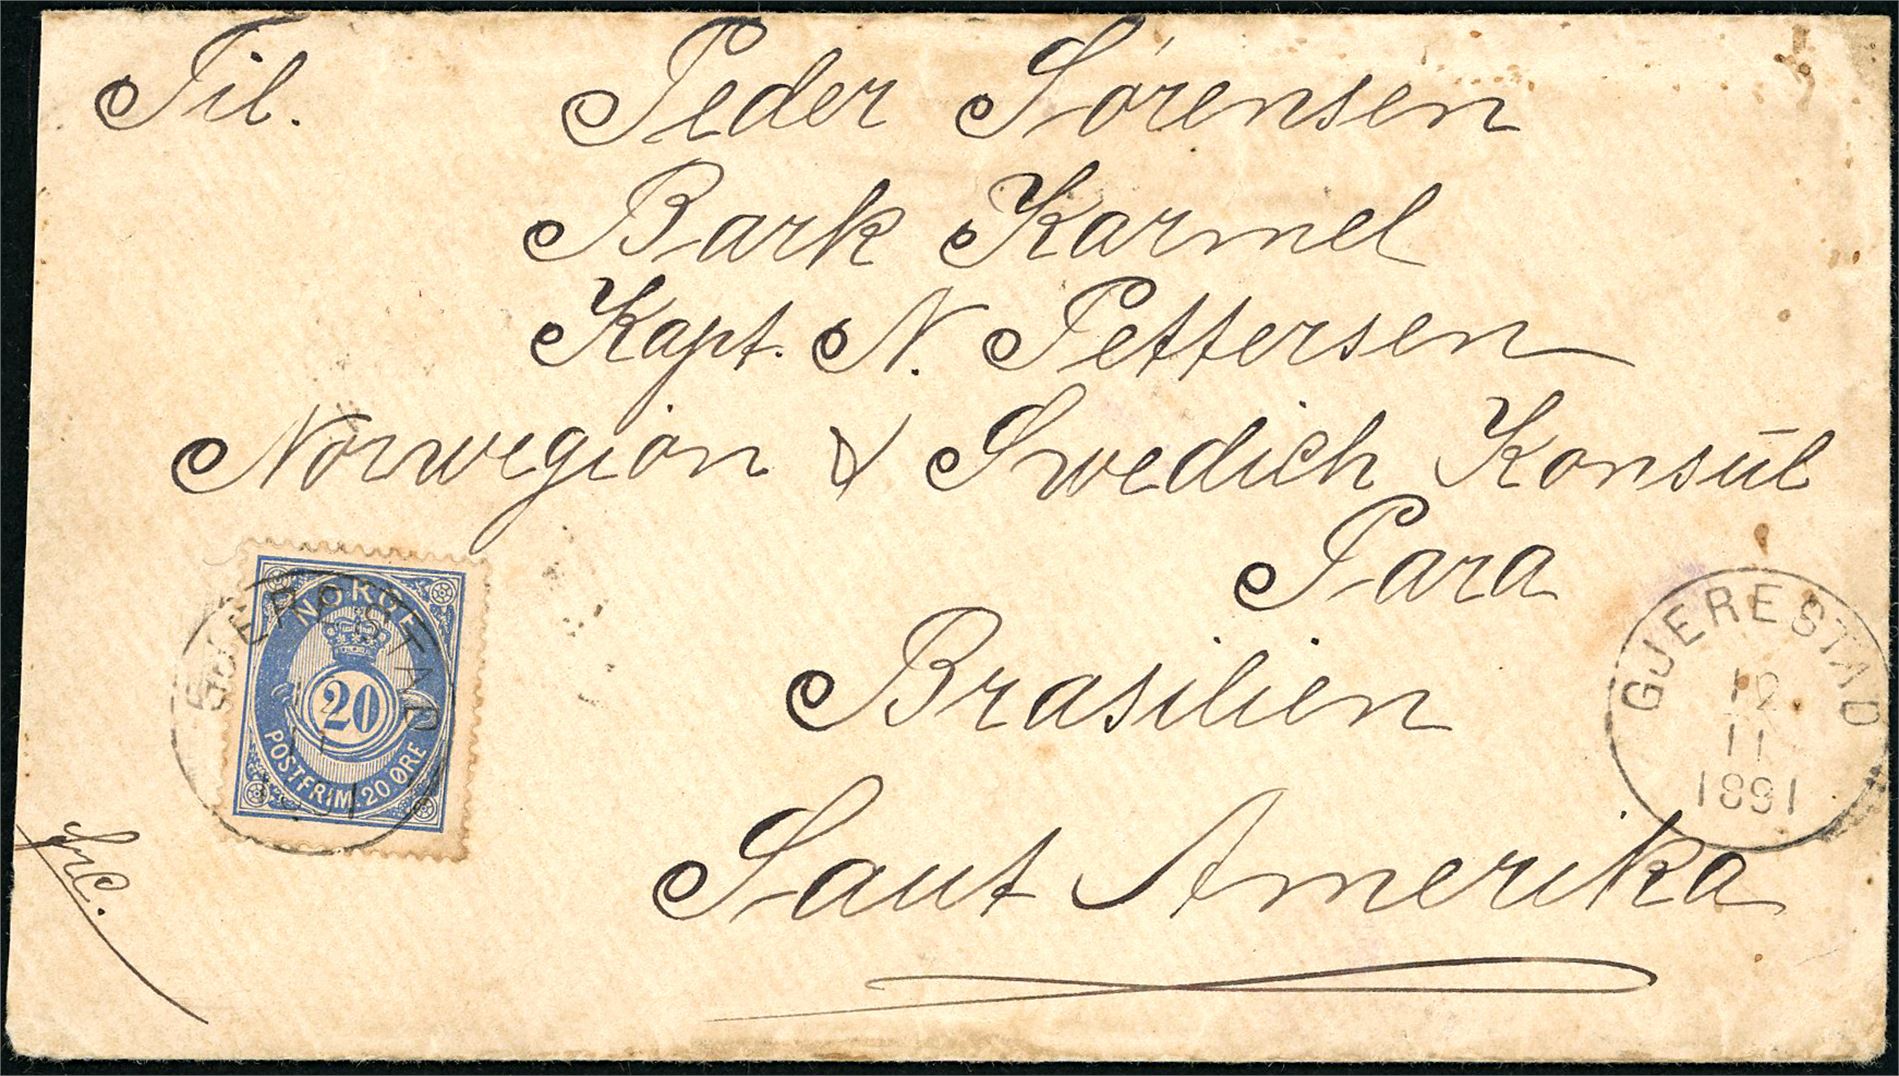 Til. Peder Sørensen
Bark Karmel
Kapt. N. Pettersen
Norwegion & Swedich Konsūl
Para
Brasilien
Saut Amerika
frc.
NORGE
20
POSTFRIM. 20 ØRE
GJERESTAD
GJERESTAD
12
11
1891